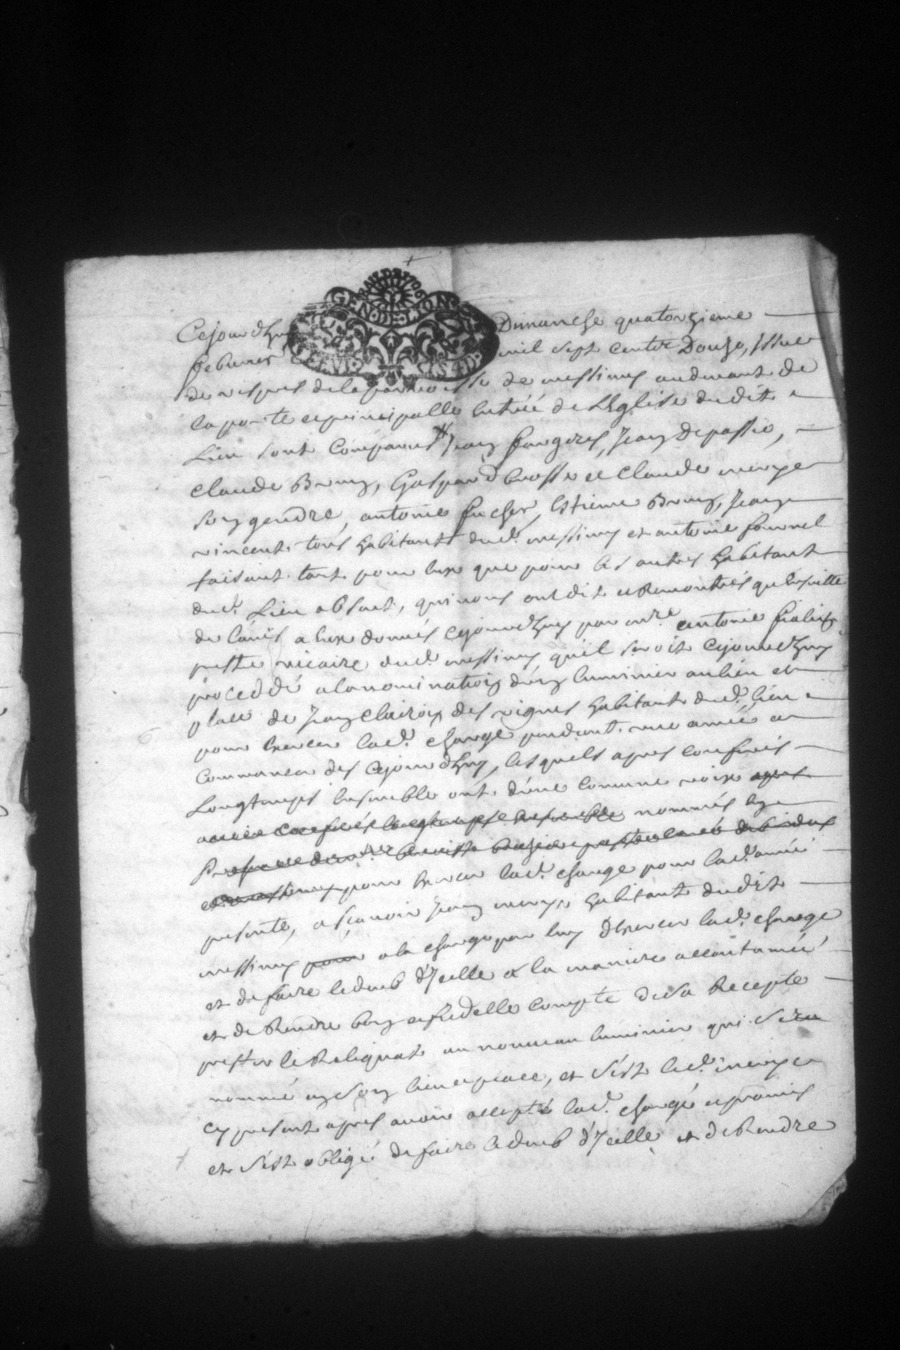 GEN·DE·LION
Cejourdhuy Dimanche quatorzieme
febvrier mil sept cents Douze, Issue
de vespres de la parroisse de messimy au devant de
la porte et principalle Entrée de L'Eglise dudit
Lieu sont comparus Jean fougeres, Jean Depassio,
Claude Bruy, Gaspard et Claude
son gendre, antoine fucher, Estienne Bruy, Jean
vincent tous habitants dud. messimy et antoine fournel
faisant tant pour eux que pour les autres habitant
dud. Lieu absent, qui nous ont dit et Remontrés qu'ensuitte
de l'avis a eux donnés cejourdhuy par mre. antoine
prestre vicaire dud. messimy qu'il seroit cejourdhuy
proceddé a la nomination d'un luminier au lieu et
place de Jean des vignes habitant dud. lieu
pour Exercer lad. charge pendant une année a
commancer des cejourdhuy, lesquels apres conferés
Longtemps Ensemble ont d'une commune voix apres
avoir conferés longtemps Ensemble nommés en
messimy pour Exercer lad. charge pour lad. année
presente, a sçavoir Jean habitant dudit
messimy pour a la charge par luy d'Exercer lad. charge
et de faire le deub d'Icelle a la maniere accoutumée
et de Rendre bon et fidelle compte de sa Recepte
prester le Reliquat au nouveau luminier qui sera
nommé en son lieu et place, et s'est led.
cy present apres avoir accepté lad. charge et promis
et s'est obligé de faire le deub d'Icelle et de Rendre